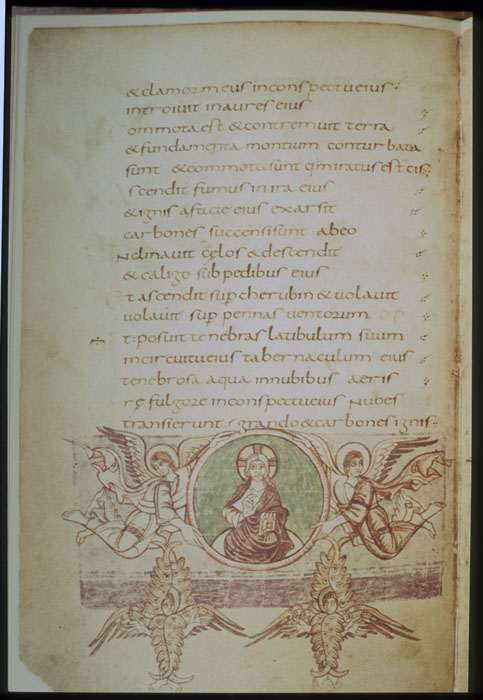 & clamor meus inconspectueius:
introiuit inaures eius
ommota est & contremuit terra
& fundamenta montium conturbata
sunt & commota sunt qmiratus est eis:
scendit fumus in ira eius
& ignis afacie eius exarsit
carbones succensisunt abeo
Nclinauit cęlos & descendit
& caligo sub pedibus eius
t ascendit sup cherubin & uolauit
uolauit sup pennas uentorum
t posuit tenebras latibulum suum
incircuitueius tabernaculum eius
tenebrosa aqua innubibus aeris
rę fulgore inconspectueius Nubes
transierunt: grando & carbones ignis: